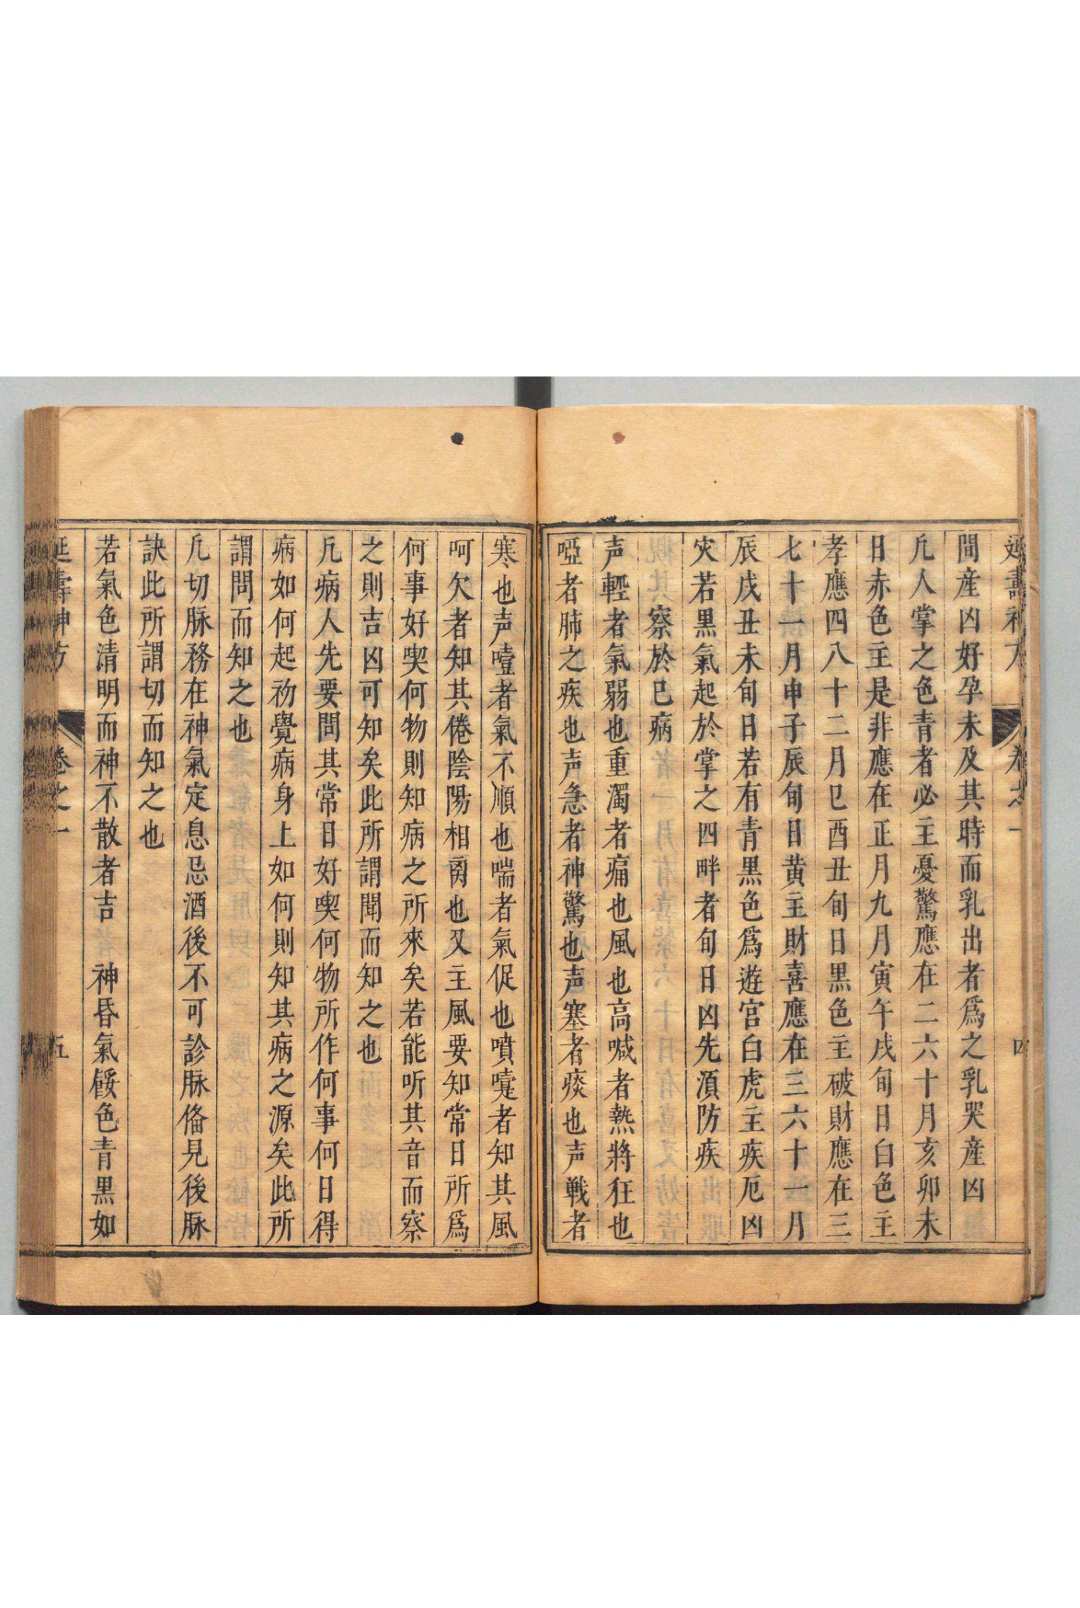 延壽神方 卷之一 四
間産凶好孕未及其時而乳出者爲之乳哭産凶
凢人掌之色青者必主憂驚應在二六十月亥卯未
日赤色主是非應在正月九月寅午戌旬日白色主
孝應四八十二月巳酉丑旬日黑色主破財應在三
七十一月申子辰旬日黄主財喜應在三六十一月
辰戌丑未旬日若有青黑色爲遊宫白虎主疾厄凶
灾若黑氣起於掌之四畔者旬日凶先湏防疾
察於已病
声輕者氣弱也重濁者痛也風也高喊者熱將狂也
啞者肺之疾也声急者神驚也声塞者痰也声戰者
寒也声噎者氣不順也喘者氣促也噴嚔者知其風
呵欠者知其倦陰陽相啇也又主風要知常日所爲
何事好喫何物則知病之所來矣若能听其音而察
之則吉凶可知矣此所謂聞而知之也
凢病人先要問其常日好喫何物所作何事何日得
病如何起初覺病身上如何則知其病之源矣此所
謂問而知之也
凢切脉務在神氣定息忌酒後不可診脉俻見後脉
訣此所謂切而知之也
若氣色清明而神不散者吉 神昏氣餒色青黑如
延壽神方 卷之一 五